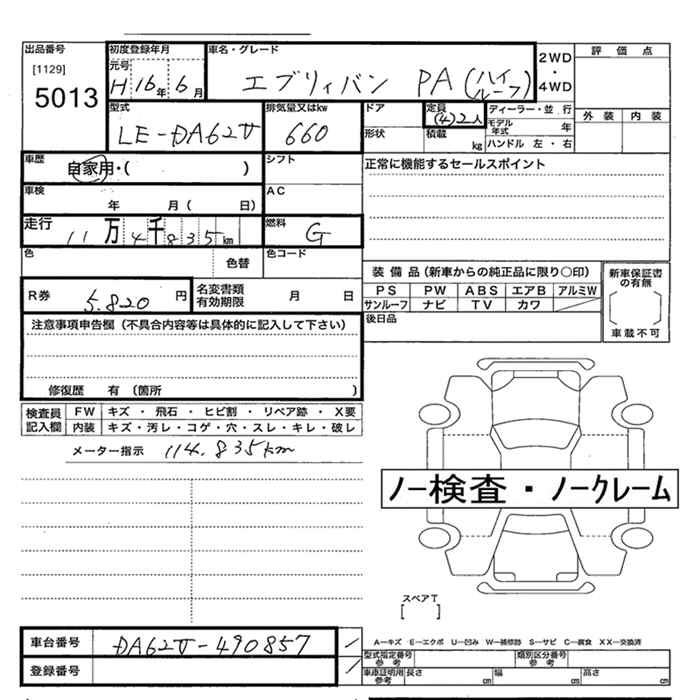 出品番号
[1129]
5013
初度登録年月
元号
H 16年 6月
車名・グレード
エブリィバン PA(ハイルーフ)
2WD
・
4WD
評価点
外装 内装
型式
LE-DA62V
排気量又はkw
660
ドア
形状
定員
(4)2人
積載
kg
ディーラー・並行
モデル年式 年
ハンドル 左・右
車歴
自家用・( )
シフト
正常に機能するセールスポイント
車検
年 月( 日)
AC
走行
11万4千835km
燃料
G
色
色替
色コード
R券
5.820円
名変書類有効期限
月 日
装備品(新車からの純正品に限り○印)
PS PW ABS エアB アルミW
サンルーフ ナビ TV カワ
新車保証書の有無
車載不可
後日品
注意事項申告欄(不具合内容等は具体的に記入して下さい)
修復歴 有(箇所 )
検査員記入欄
FW キズ・飛石・ヒビ割・リペア跡・X要
内装 キズ・汚レ・コゲ・穴・スレ・キレ・破レ
メーター指示 114.835km
ノー検査・ノークレーム
スペアT
[ ]
車台番号 DA62V-490857
登録番号
A-キズ E-エクボ U-凹み W-補修跡 S-サビ C-腐食 XX-交換済
型式指定番号 参考
類別区分番号 参考
車庫証明用 参考
長さ cm 幅 cm 高さ cm